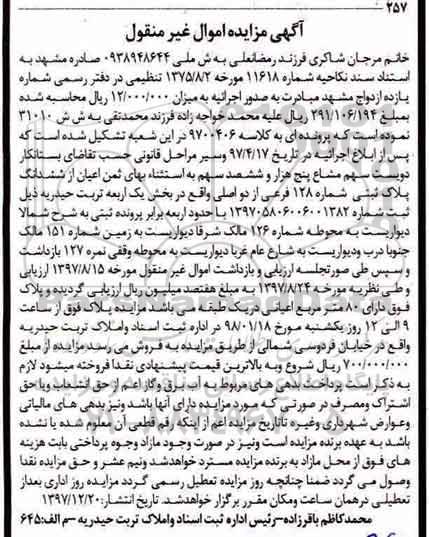 ۲۵۷
آگهی مزایده اموال غیر منقول
خانم مرجان شاکری فرزند رمضانعلی به ش ملی ۰۹۳۸۹۴۸۶۴۴ صادره مشهد به
استناد سند نکاحیه شماره ۱۱۶۱۸ مورخه ۱۳۷۵/۸/۲ تنظیمی در دفتر رسمی شماره
یازده ازدواج مشهد مبادرت به صدور اجرائیه به میزان ۱۲/۰۰۰/۰۰۰ ریال محاسبه شده
بمبلغ ۲۹۱/۱۰۶/۱۹۴ ریال علیه محمد خواجه زاده فرزند محمدتقی به ش ش ۳۱۰۱۰
نموده است که پرونده ای به کلاسه ۹۷۰۰۴۰۶ در این شعبه تشکیل شده است که
پس از ابلاغ اجرائیه در تاریخ ۹۷/۴/۱۷ وسیر مراحل قانونی حسب تقاضای بستانکار
دویست سهم مشاع پنج هزار و ششصد سهم به استثناء بهای ثمن اعیان از ششدانگ
پلاک ثبتی شماره ۱۲۸ فرعی از دو اصلی واقع در بخش یک اربعه تربت حیدریه ذیل
ثبت شماره ۱۳۹۷۰۵۸۰۶۰۰۶۰۰۱۳۸۲ با حدود اربعه برابر پرونده ثبتی به شرح شمالا
دیواریست به محوطه شماره ۱۲۶ مالک شرقا دیواریست به زمین شماره ۱۵۱ مالک
جنوبا درب ودیواریست به شارع عام غربا دیواریست به محوطه وقفی نمره ۱۲۷ بازداشت
و سپس طی صورتجلسه ارزیابی و بازداشت اموال غیر منقول مورخه ۱۳۹۷/۸/۱۵ ارزیابی
و طی نظریه مورخه ۱۳۹۷/۸/۲۴ به مبلغ هفتصد میلیون ریال ارزیابی گردیده و پلاک
فوق دارای ۸۰ متر مربع اعیانی در یک طبقه می باشد مزایده پلاک فوق از ساعت
۹ الی ۱۲ روز یکشنبه مورخ ۹۸/۰۱/۱۸ در اداره ثبت اسناد واملاک تربت حیدریه
واقع در خیابان فردوسی شمالی از طریق مزایده به فروش می رسد مزایده از مبلغ
۷۰۰/۰۰۰/۰۰۰ ریال شروع وبه بالاترین قیمت پیشنهادی نقدا فروخته میشود لازم
به ذکر است پرداخت بدهی های مربوط به آب برق وگاز اعم از حق انشعاب ویا حق
اشتراک ومصرف در صورتی که مورد مزایده دارای آنها باشد ونیز بدهی های مالیاتی
وعوارض شهرداری وغیره تا تاریخ مزایده اعم از اینکه رقم قطعی آن معلوم شده یا نشده
باشد به عهده برنده مزایده است ونیز در صورت وجود مازاد وجوه پرداختی بابت هزینه
های فوق از محل مازاد به برنده مزایده مسترد خواهدشد ونیم عشر و حق مزایده نقدا
وصول می گردد ضمنا چنانچه روز مزایده تعطیل رسمی گردد مزایده روز اداری بعداز
تعطیلی درهمان ساعت ومکان مقرر برگزار خواهدشد. تاریخ انتشار: ۱۳۹۷/۱۲/۲۰
محمدکاظم باقرزاده–رئیس اداره ثبت اسناد واملاک تربت حیدریه –م الف: ۶۴۵